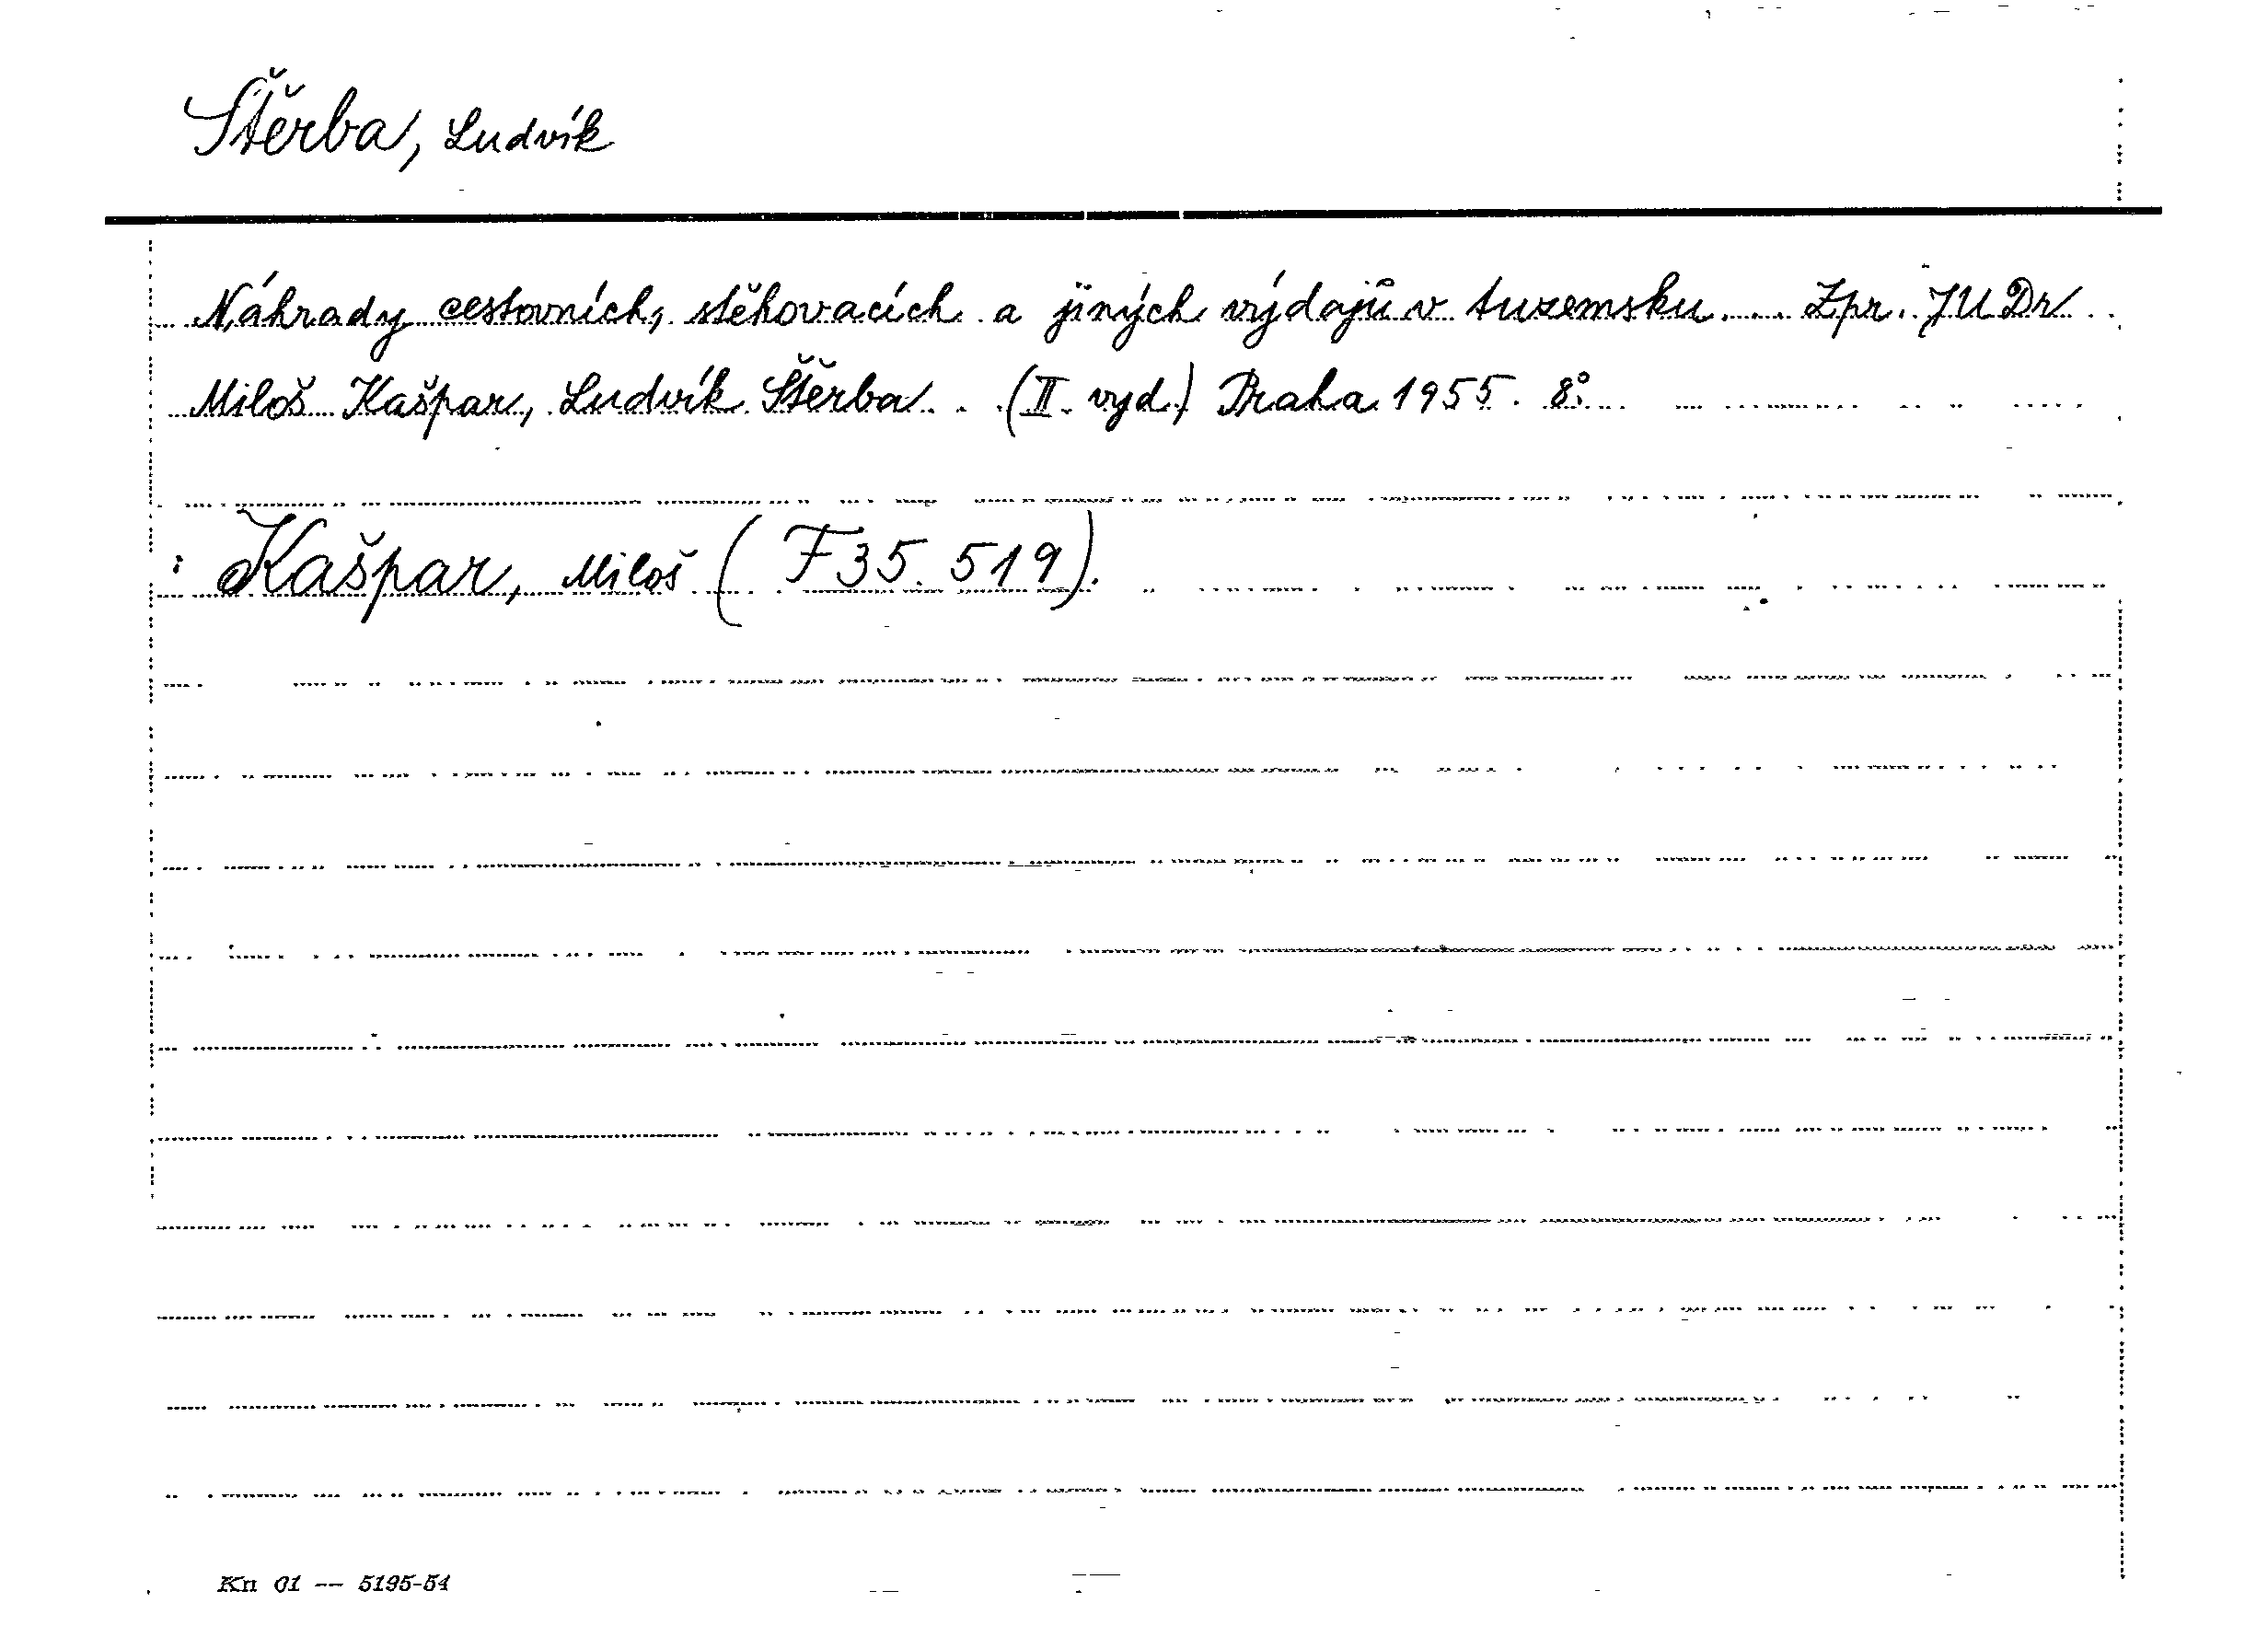 Štěrba, Ludvík
Náhrady cestovních, stěhovacích a jiných výdajů v tuzemsku... Zpr. JUDr
Miloš Kašpar, Ludvík Štěrba... (II. vyd.) Praha 1955. 8°.
: Kašpar, Miloš (F 35.519).
Kn 01 -- 5195-54